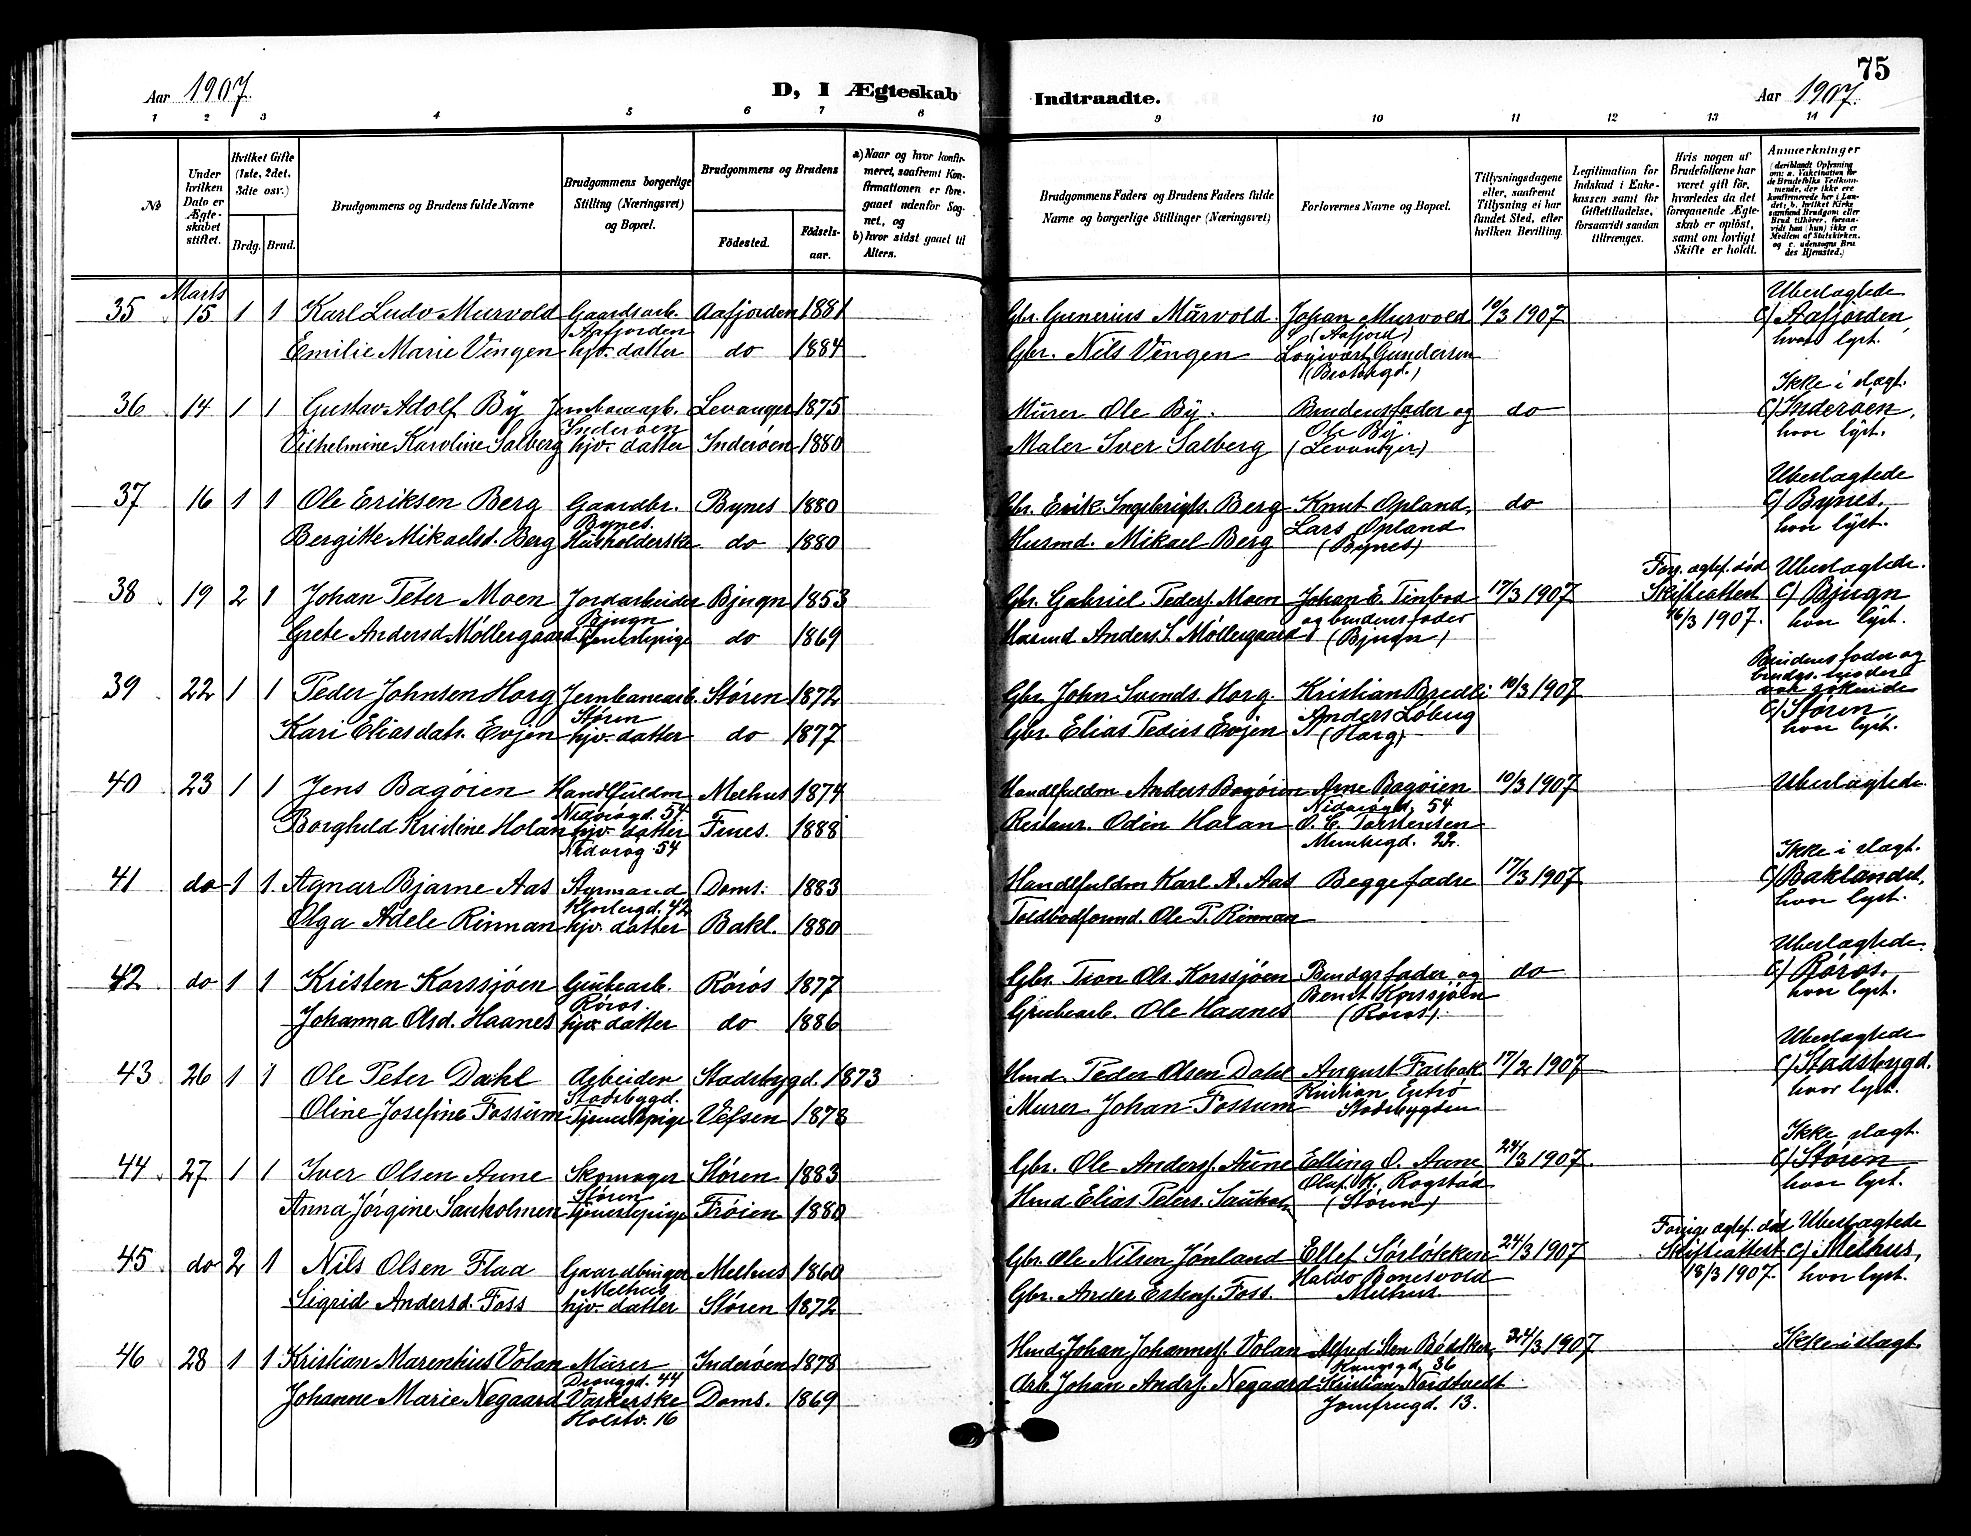 Aar 1907.
D, I Ægteskab
Indtraadte.
75
Aar 1907.
1 2 3 4 5 6 7 8 9 10 11 12 13 14
No
Under hvilken Dato er Ægteskabet stiftet.
Hvilket Gifte (1ste, 2det, 3die osv.)
Brdg. Brud.
Brudgommens og Brudens fulde Navne
Brudgommens borgerlige Stilling (Næringsvei) og Bopæl.
Brudgommens og Brudens
Födested.
Födselsaar.
a) Naar og hvor konfirmeret, saafremt Konfirmationen er foregaaet udenfor Sognet, og
b) hvor sidst gaaet til Alters.
Brudgommens Faders og Brudens Faders fulde Navne og borgerlige Stillinger (Næringsvei)
Forlovernes Navne og Bopæl.
Tillysningsdagene eller, saafremt Tillysning ei har fundet Sted, efter hvilken Bevilling.
Legitimation for Indskud i Enkekassen samt for Giftetilladelse, forsaavidt saadan tiltrænges.
Hvis nogen af Brudefolkene har været gift för, hvorledes da det foregaaende Ægteskab er oplöst, samt om lovligt Skifte er holdt.
Anmærkninger
(deriblandt Oplysning om: a. Vakcination for de Brudefolks Vedkommende, der ikke ere konfirmerede her i Landet; b. hvilket Kirkesamfund Brudgom eller Brud tilhörer, forsaavidt han (hun) ikke er Medlem af Statskirken, og c. udensogns Brudes Hjemsted.)
Marts
35 15 1 1 Karl Ludv Murvold Gaardsarb. Aafjorden Aafjorden 1881 Gbr. Gunerius Murvold. Johan Murvold (Aafjord) 10/3 1907 Ubeslægtede
Emilie Marie Vingen hjv. datter do 1884 Gbr. Nils Vingen Logivært Gundersen c) Aafjorden, hvor lyst.
36 14 1 1 Gustav Adolf By Jernbanearb. Inderøen Levanger 1875 Murer Ole By. Brudens fader og do Ikke i slagt.
Vilhelmine Karoline Salberg hjv. datter Inderøen 1880 Maler Iver Salberg Ole By. (Levanger) c) Inderøen, hvor lyst.
37 16 1 1 Ole Eriksen Berg Gaardbr. Bynes. Bynes 1880 Gbr. Erik Ingebrigts. Berg Knut Opland, do Ubeslægtede
Bergitte Mikaelsd. Berg Husholderske do 1880 Husmd. Mikael Berg Lars Opland (Bynes) c) Bynes, hvor lyst.
38 19 2 1 Johan Peter Moen Jordarbeider Bjugn Bjugn 1853 Gbr. Gabriel Peders. Moen Johan E. Tinbod 17/3 1907 Forr. ægtef. død Skifteattest 16/3 1907. Ubeslægtede.
Grete Andersd Møllergaard Tjenestepige do 1869 Anders S. Møllergaard og brudens fader (Bjugn) c) Bjugn hvor lyst.
39 22 1 1 Peder Johnsen Horg Jernbanearb. Støren Støren 1872 Gbr. John Svends. Horg. Kristian Bredli 10/3 1907 Brudens fader og
Kari Eliasdatr. Evjen hjv. datter do 1877 Gbr. Elias Peders Evjen Anders Løberg (Horg) c) Støren hvor lyst.
40 23 1 1 Jens Bagøien Handlfuldm Melhus 1874 Handlfuldm Anders Bagøien Arne Bagøien 10/3 1907 Ubeslagtede.
Borghild Kristine Holan hjv. datter 54 1888 Restaur. Odin Holan 54 O. C. Torstensen 22.
41 do 1 1. Agnar Bjarne Aas Styrmand Doms. 1883 Handlfuldm Karl A. Aas Begge fædre 17/3 1907 Ikke i slagt.
Olga Adele Rinnan hjv. datter Bakl. 1880 Ole P. Rinnan c) Baklandet, hvor lyst.
42 do 1 1 Kristen Korssjøen Grubearb. Røros Røros 1877 Gbr. Ols. Korssjøen Brudgs fader og do Ubeslægtede.
Johanna Olsd. Haanes hjv. datter do 1886 Grubearb. Ole Haanes Bendt Korssjøen (Røros). c) Røros. hvor lyst.
43 26 1 1 Ole Peter Dahl Arbeider Stadsbygd. Stadsbygd. 1873 Hmd. Peder Olsen Dahl August Farbak 17/2 1907 Ubeslægtede
Oline Josefine Fossum Tjenestepige Vefsen 1878 Murer Johan Fossum Kristian Stadsbygden c) Stadsbygd. hvor lyst.
44 27 1 1 Iver Olsen Aune Skomager Støren Støren 1883 Gbr. Ole Anders. Aune Elling O. Aune 24/3 1907. Ikke slagt.
Anna Jørgine Saukolmen tjenestepige Frøien 1880 Hmd Elias Peters. Olaf K. Rogstad (Støren) c) Støren hvor lyst.
45 do 2 1 Nils Olsen Flaa Gaardbruger Melhus Melhus 1860 Gbr. Ole Nilsen Jønland Ellef Sørløkken 24/3 1907 Forrige ægtef. død Skifteattest 18/3 1907. Ubeslægtede
Sigrid Andersd. Foss hjv. datter Støren 1872 Gbr. Anders Estens. Foss. Haldo Bonesvold Melhus c) Melhus, hvor lyst.
46 28 1 1 Kristian Marenhius Volan Murer 44 Inderøen 1878 Hmd. Johan Johannes. Volan Alfred Sten 36 24/3 1907 Ikke i slagt.
Johanne Marie Negaard Vaskerske Holstv. 16 Doms. 1869 Arb. Johan Andrs. Negaard Kristian Nordtvedt Jomfrugd. 13.